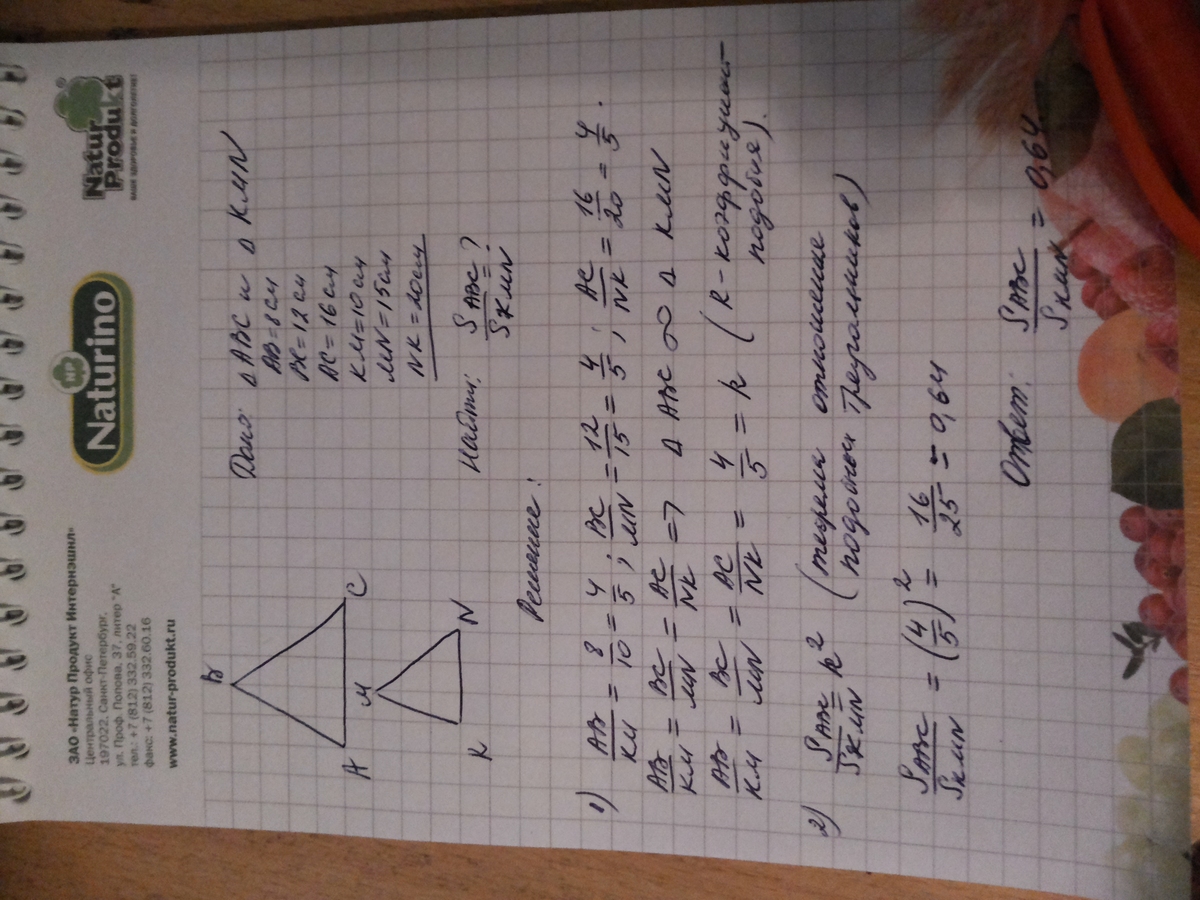 ЗАО «Натур Продукт Интернэшнл»
Центральный офис
197022, Санкт-Петербург,
ул. Проф. Попова, 37, литер "А"
тел.: +7 (812) 332.59.22
факс: +7 (812) 332.60.16
www.natur-produkt.ru
NP
Naturino
Natur
Produkt®
ВАШЕ ЗДОРОВЬЕ И ДОЛГОЛЕТИЕ
B
A C
M
K N
Дано: Δ ABC и Δ KMN
AB = 8 см
BC = 12 см
AC = 16 см
KM = 10 см
MN = 15 см
NK = 20 см
Найти: S ABC / S KMN = ?
Решение:
1) AB/KM = 8/10 = 4/5; BC/MN = 12/15 = 4/5; AC/NK = 16/20 = 4/5.
AB/KM = BC/MN = AC/NK => Δ ABC ∞ Δ KMN
AB/KM = BC/MN = AC/NK = 4/5 = k (k - коэффициент
подобия).
2) S ABC / S KMN = k² (теорема отношение
подобных треугольников)
S ABC / S KMN = (4/5)² = 16/25 = 0,64
Ответ: S ABC / S KMN = 0,64